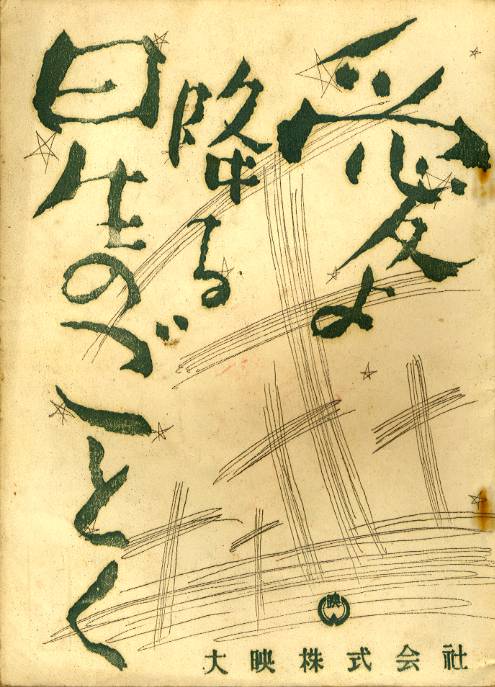 愛よ
降る
星のごとく
大映株式会社